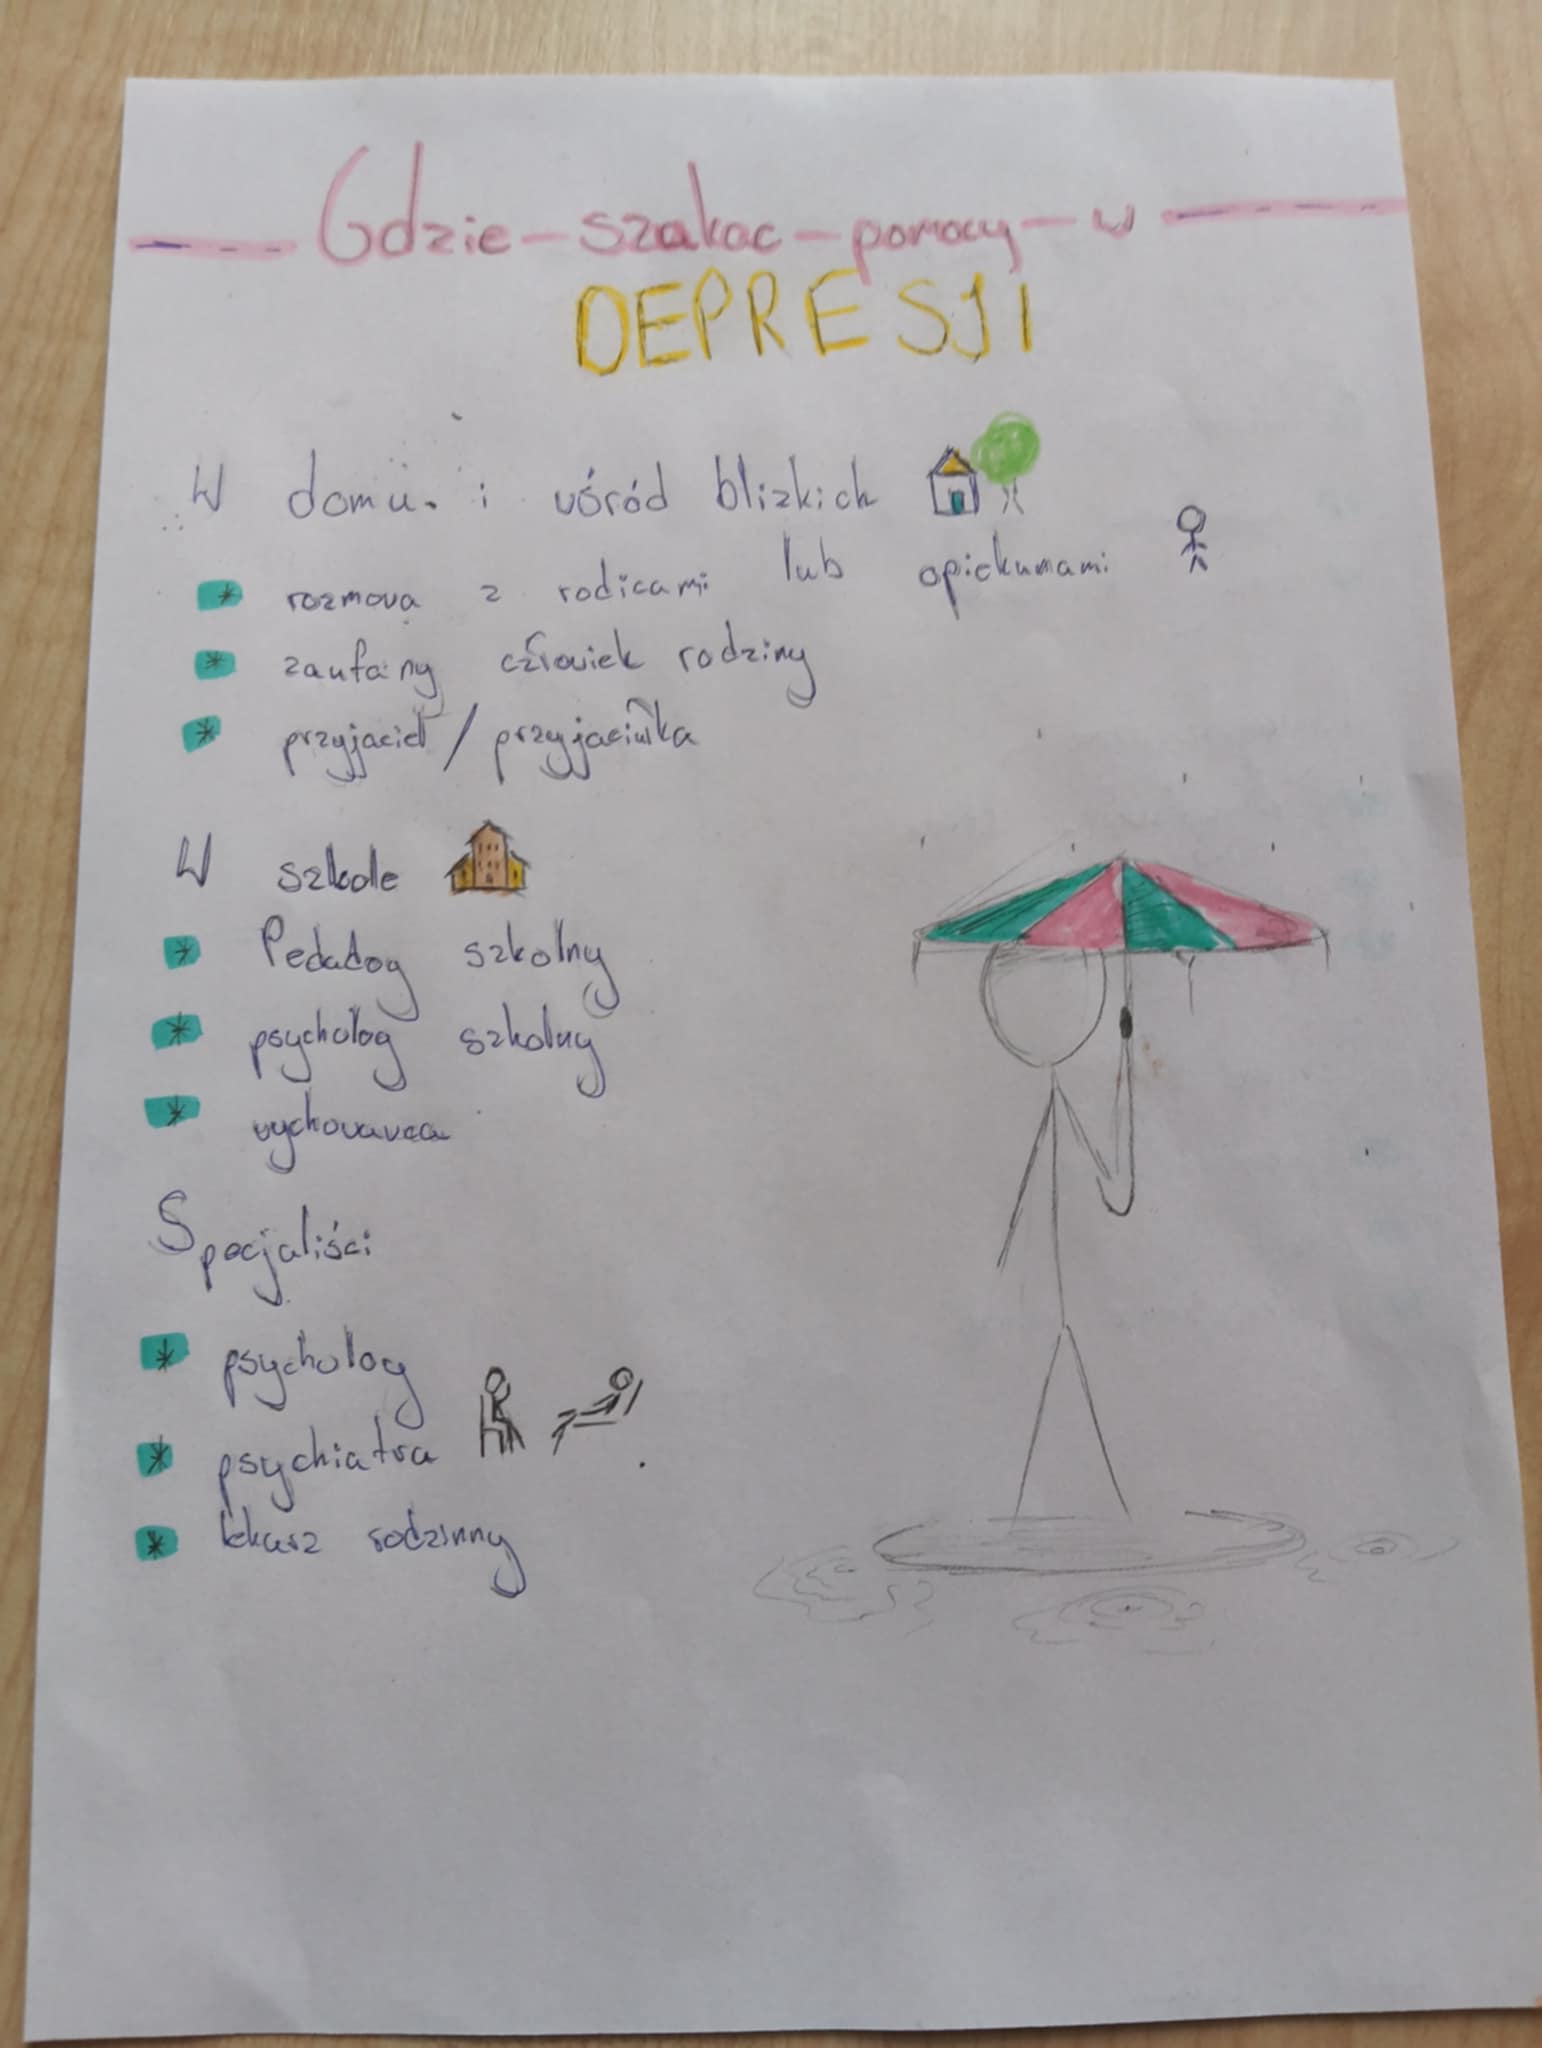 Gdzie - szakac - pomocy - w
DEPRESJI
W domu. i wśród blizkich
* rozmowa z rodicami lub opiekunami
* zaufany człowiek rodziny
* przyjaciel / przyjaciułka
W szkole
* Pedadog szkolny
* psycholog szkolny
* wychowawca
Specjaliści
* psycholog
* psychiatra
* lekarz rodzinny